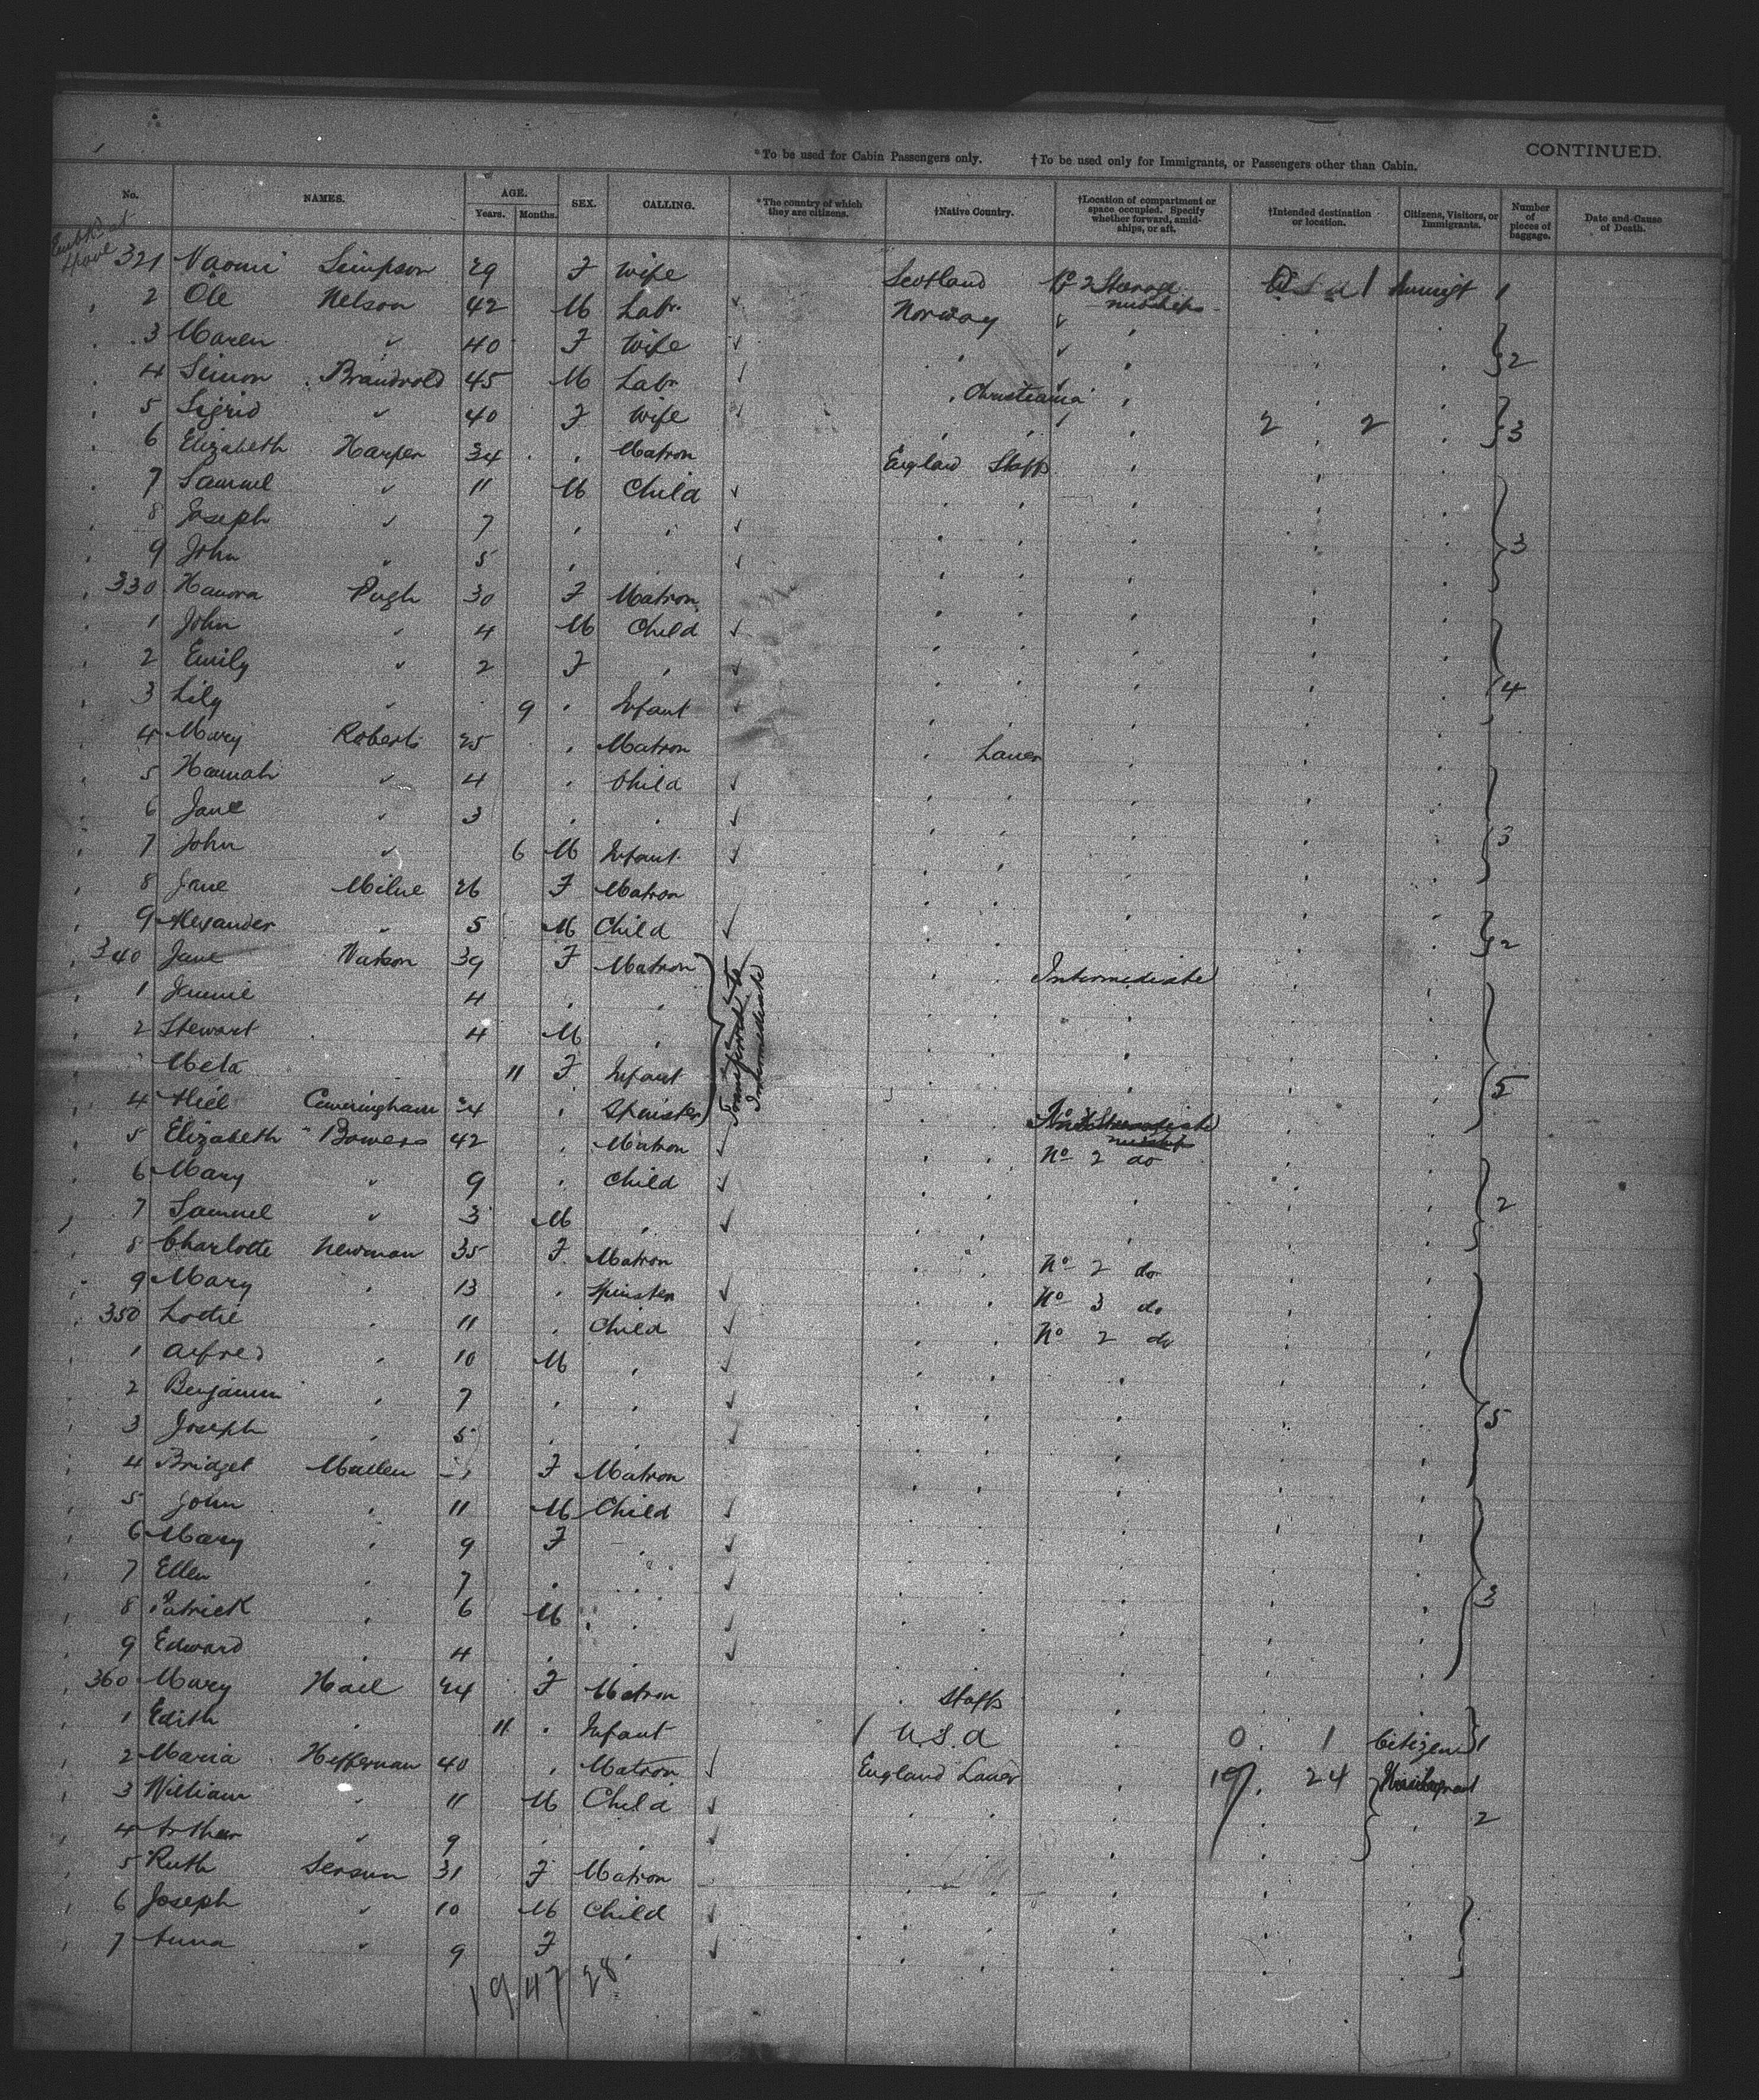 *To be used for Cabin Passengers only. †To be used only for Immigrants, or Passengers other than Cabin. CONTINUED.
No. NAMES. AGE. Years. Months. SEX. CALLING. *The country of which they are citizens. †Native Country. †Location of compartment or space occupied. Specify whether forward, amidships, or aft. †Intended destination or location. Citizens, Visitors, or Immigrants. Number of pieces of baggage. Date and Cause of Death.
321 Naomi Simpson 29 F Wife Scotland 2 Steerage midships U.S.A 1 1
2 Ole Nelson 42 M Labr. Norway
3 Maren " 40 F Wife 2
4 Simon Brandvold 45 M Labr Christiania
5 Sigrid " 40 F Wife 2 2 3
6 Elizabeth Harper 34 " Matron England Staffs
7 Samuel " 11 M Child
8 Joseph " 7 " " 3
9 John " 5 " "
330 Hanora Pugh 30 F Matron
1 John " 4 M Child
2 Emily " 2 F " 4
3 Lily " 9 " Infant
4 Mary Roberts 25 " Matron " Lancr
5 Hannah " 4 " Child
6 Jane " 3 " "
7 John " 6 M Infant 3
8 Jane Milne 26 F Matron
9 Alexander " 5 M Child 2
340 Jane Watson 39 F Matron Intermediate
1 Jennie 4 " "
2 Stewart 4 M "
" Meta 11 F Infant 5
4 Cunningham 34 " Spinster
5 Elizabeth Bowers 42 " Matron No 2 do
6 Mary " 9 " Child
7 Samuel " 3 M " 2
8 Charlotte Newman 35 F Matron No 2 do
9 Mary " 13 " Spinster No 3 do
350 Lottie " 11 " Child No 2 do
1 Alfred " 10 M "
2 Benjamin " 7 " "
3 Joseph " 5 " " 5
4 Bridget F Matron
5 John " 11 M Child
6 Mary " 9 F "
7 Ellen " 7 " "
8 Patrick " 6 M " 3
9 Edward " 4 " "
360 Mary Hall 24 F Matron " Staffs
1 Edith " 11 " Infant U.S.A 0 1 Citizen 1
2 Maria Heffernan 40 " Matron England Lancr 19 24
3 William " 11 M Child 2
4 Arthur " 9 " "
5 Ruth 31 F Matron
6 Joseph " 10 M Child
7 Anna " 9 F "
Transferred to Intermediate
19 47 28